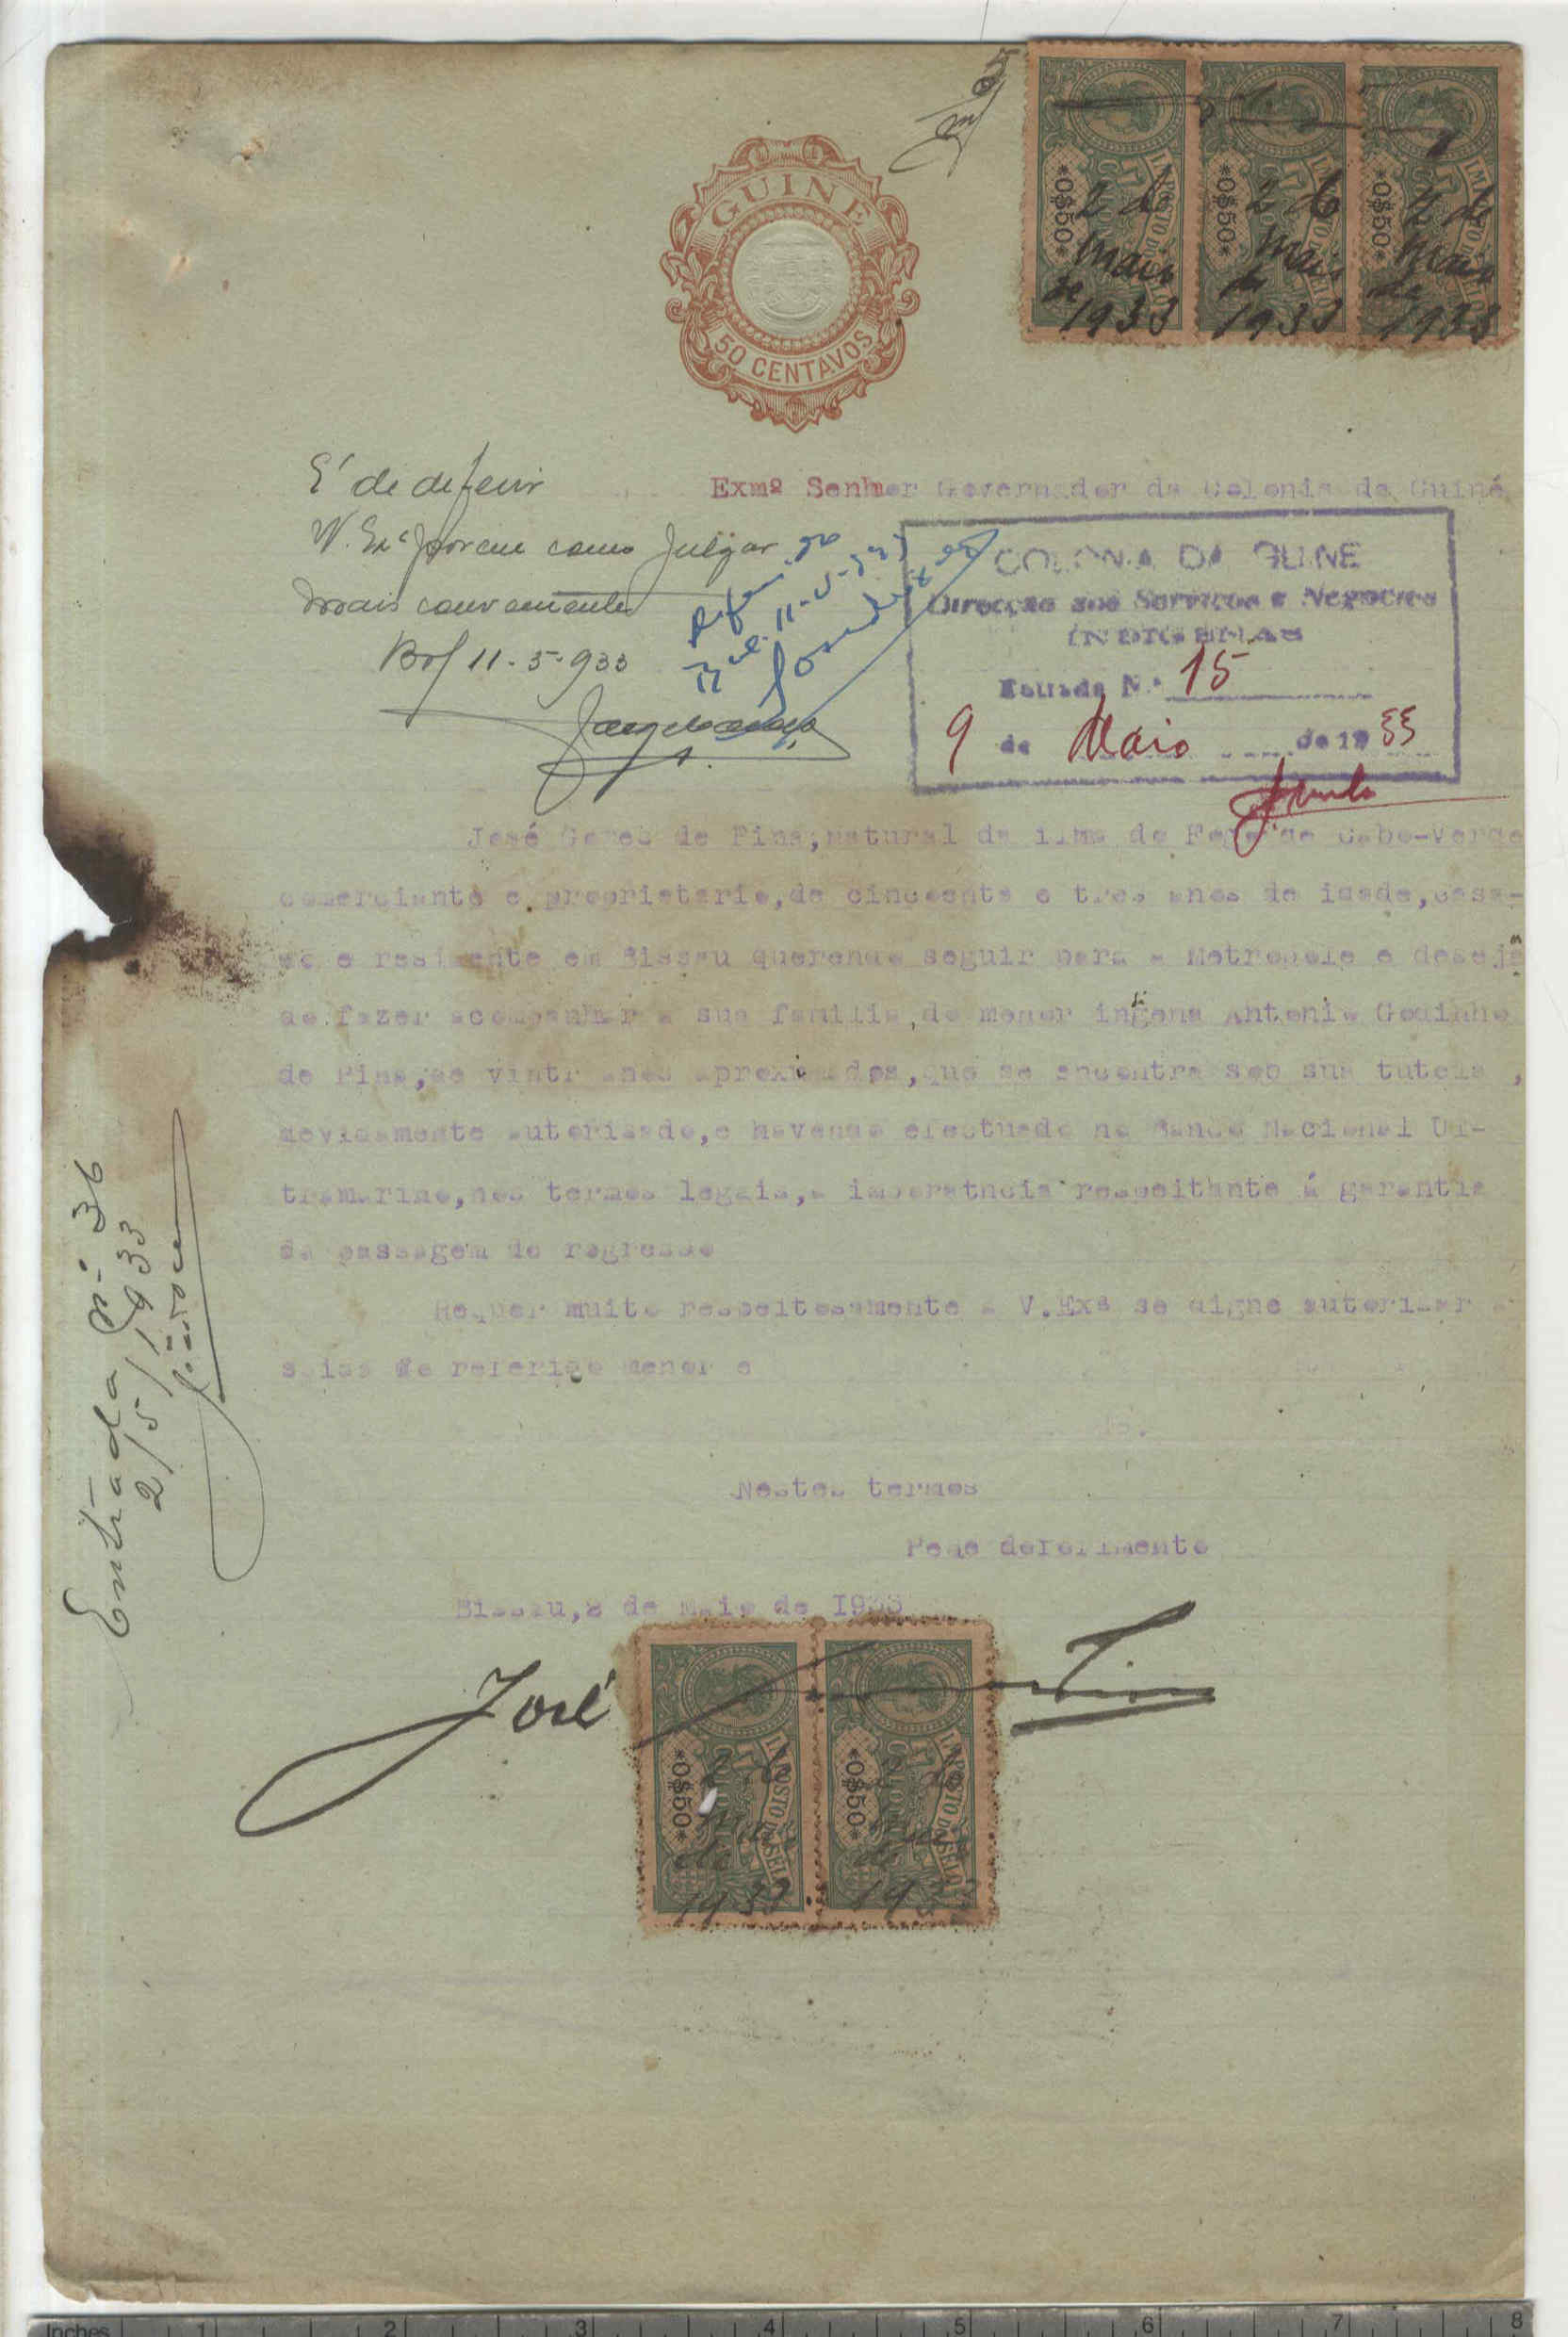 GUINE
50 CENTAVOS
IMPOSTO DO SELO
*0$50*
2 de
Maio
de
1933
IMPOSTO DO SELO
*0$50*
2 de
Maio
de
1933
*0$50*
2 de
Maio
de
1933
É de deferir
V. Exª porem como julgar
mais conveniente
Bol 11-5-933
Exmº Senhor Governador da Colonia da Guiné
COLONIA DA GUINE
Direcção dos Serviços e Negocios
INDIGENAS
Entrada N.º 15
9 de Maio de 1933
José Gomes de Pina, natural da ilha do Fogo de Cabo-Verde
comerciante e proprietario, de cincoenta e tres anos de idade, casa-
do e residente em Bissau querendo seguir para a Metropole e deseja
do fazer acompanhar a sua familia, do menor indigena Antonio Godinho
de Pina, de vinte anos aproximados, que se encontra sob sua tutela ,
devidamente autorisado, e havendo efectuado no Banco Nacional Ul-
tramarino, nos termos legais, a importancia respeitante á garantia
da passagem de regresso
Requer muito respeitosamente a V.Exª se digne autorisar a
saida do referido menor e
Nestes termos
Pede deferimento
Bissau, 2 de Maio de 1933
José
IMPOSTO DO SELO
*0$50*
1933
IMPOSTO DO SELO
*0$50*
193
Entrada nº 36
2/5/1933
Inches 1 2 3 4 5 6 7 8